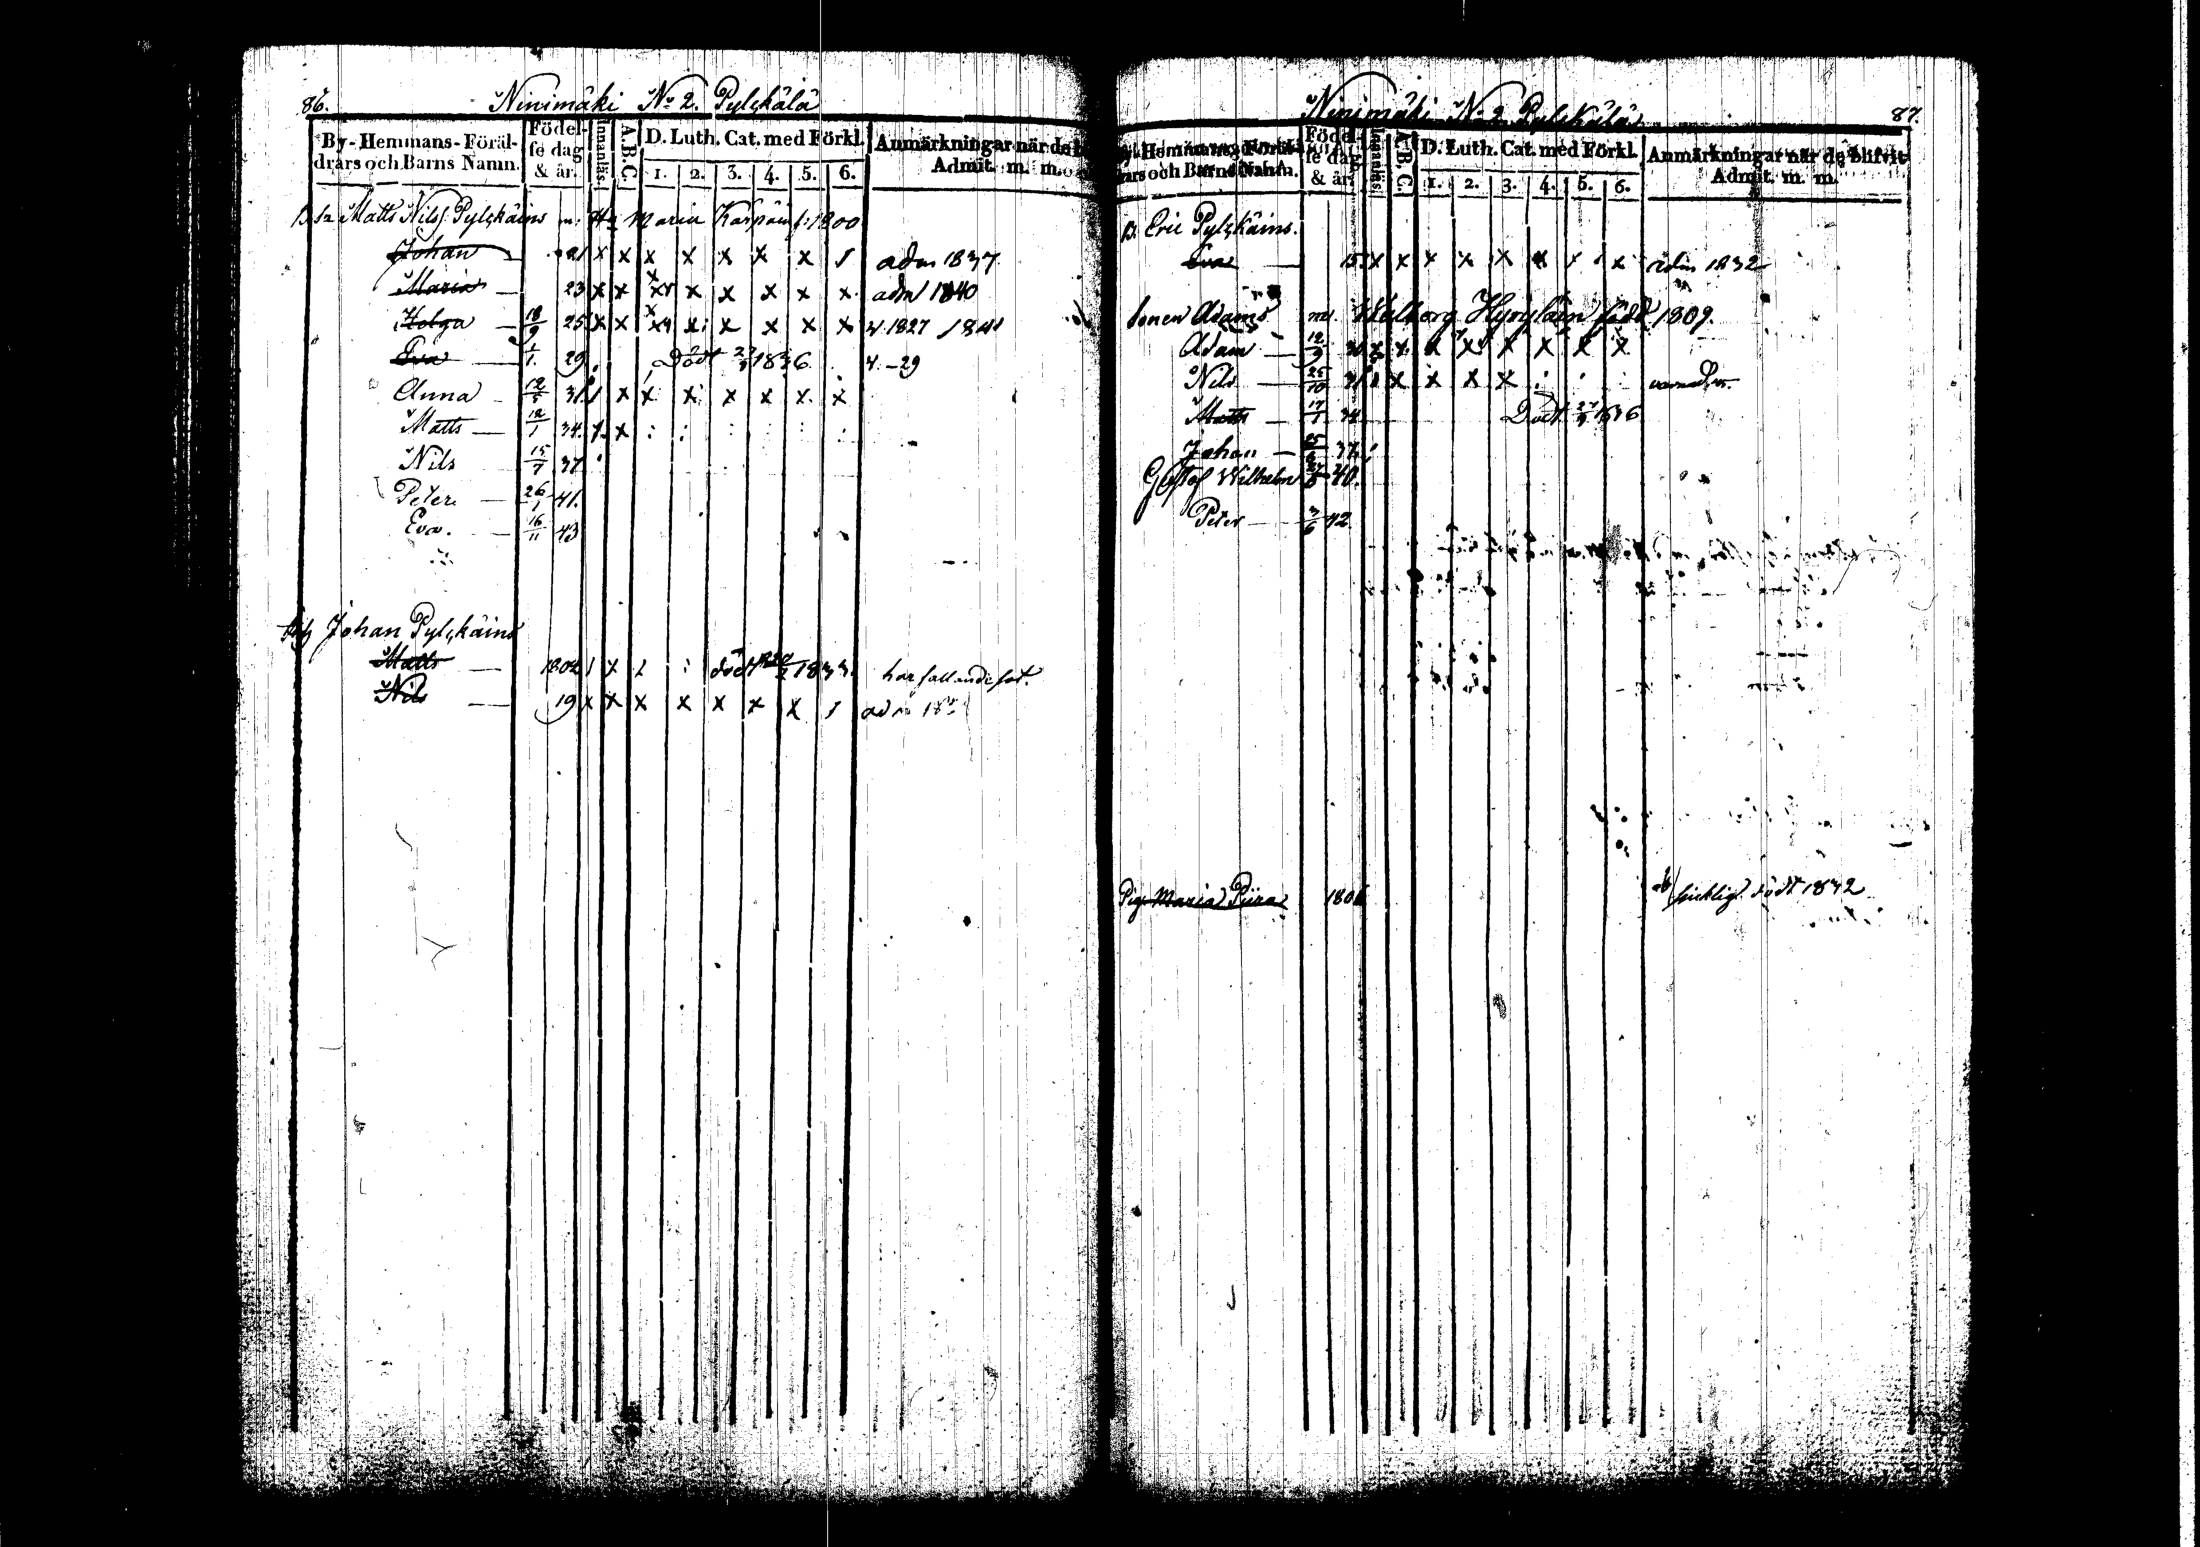 86. Ninimäki No 2. Pylckälä
By-Hemmans-Föräl-drars och Barns Namn. Födel-se dag & år. Innanläs. A.B.C. D. Luth. Cat. med Förkl. 1. 2. 3. 4. 5. 6. Anmärkningar när de Admit. m. m.
Matts Nilss Pylckäins m: Maria f: 1800
Johan 21 x x x x x x x / adm 1837
Maria 23 x x x x x x x x adm 1840
Helga 18/9 25 x x x x x x x x 4. 1827 1841
Eva 1/1 29 Död 1836 4. -29
Anna 12/5 31 / x x x x x x x
Matts 12/1 34. x
Nils 15/7 37
Peter 26/1 41.
Eva. 16/11 43
Johan Pylckäins
Matts 1802 / x död 1833. har fallandesot.
Nils 19 x x x x x x x / adm
Ninimäki No 2 Pylckälä 87.
By-Hemmans-Föräl-drars och Barns Namn. Födel-se dag & år. Innanläs. A.B.C. D. Luth. Cat. med Förkl. 1. 2. 3. 4. 5. 6. Anmärkningar när de blifvit Admit. m. m.
B. Eric Pylckäins.
Eva 15 x x x x x x x x adm 1832
Sonen Adams m. Walborg Hyryläin född 1809.
Adam 12/9 30 x x x x x x x x
Nils 25/10 31 x x x x
Matts 17/1 34 Död 1836
Johan 37
Gustaf Wilhelm 40.
Peter 3/6 42
Pig. Maria Piira 1806 sicklig död 1832